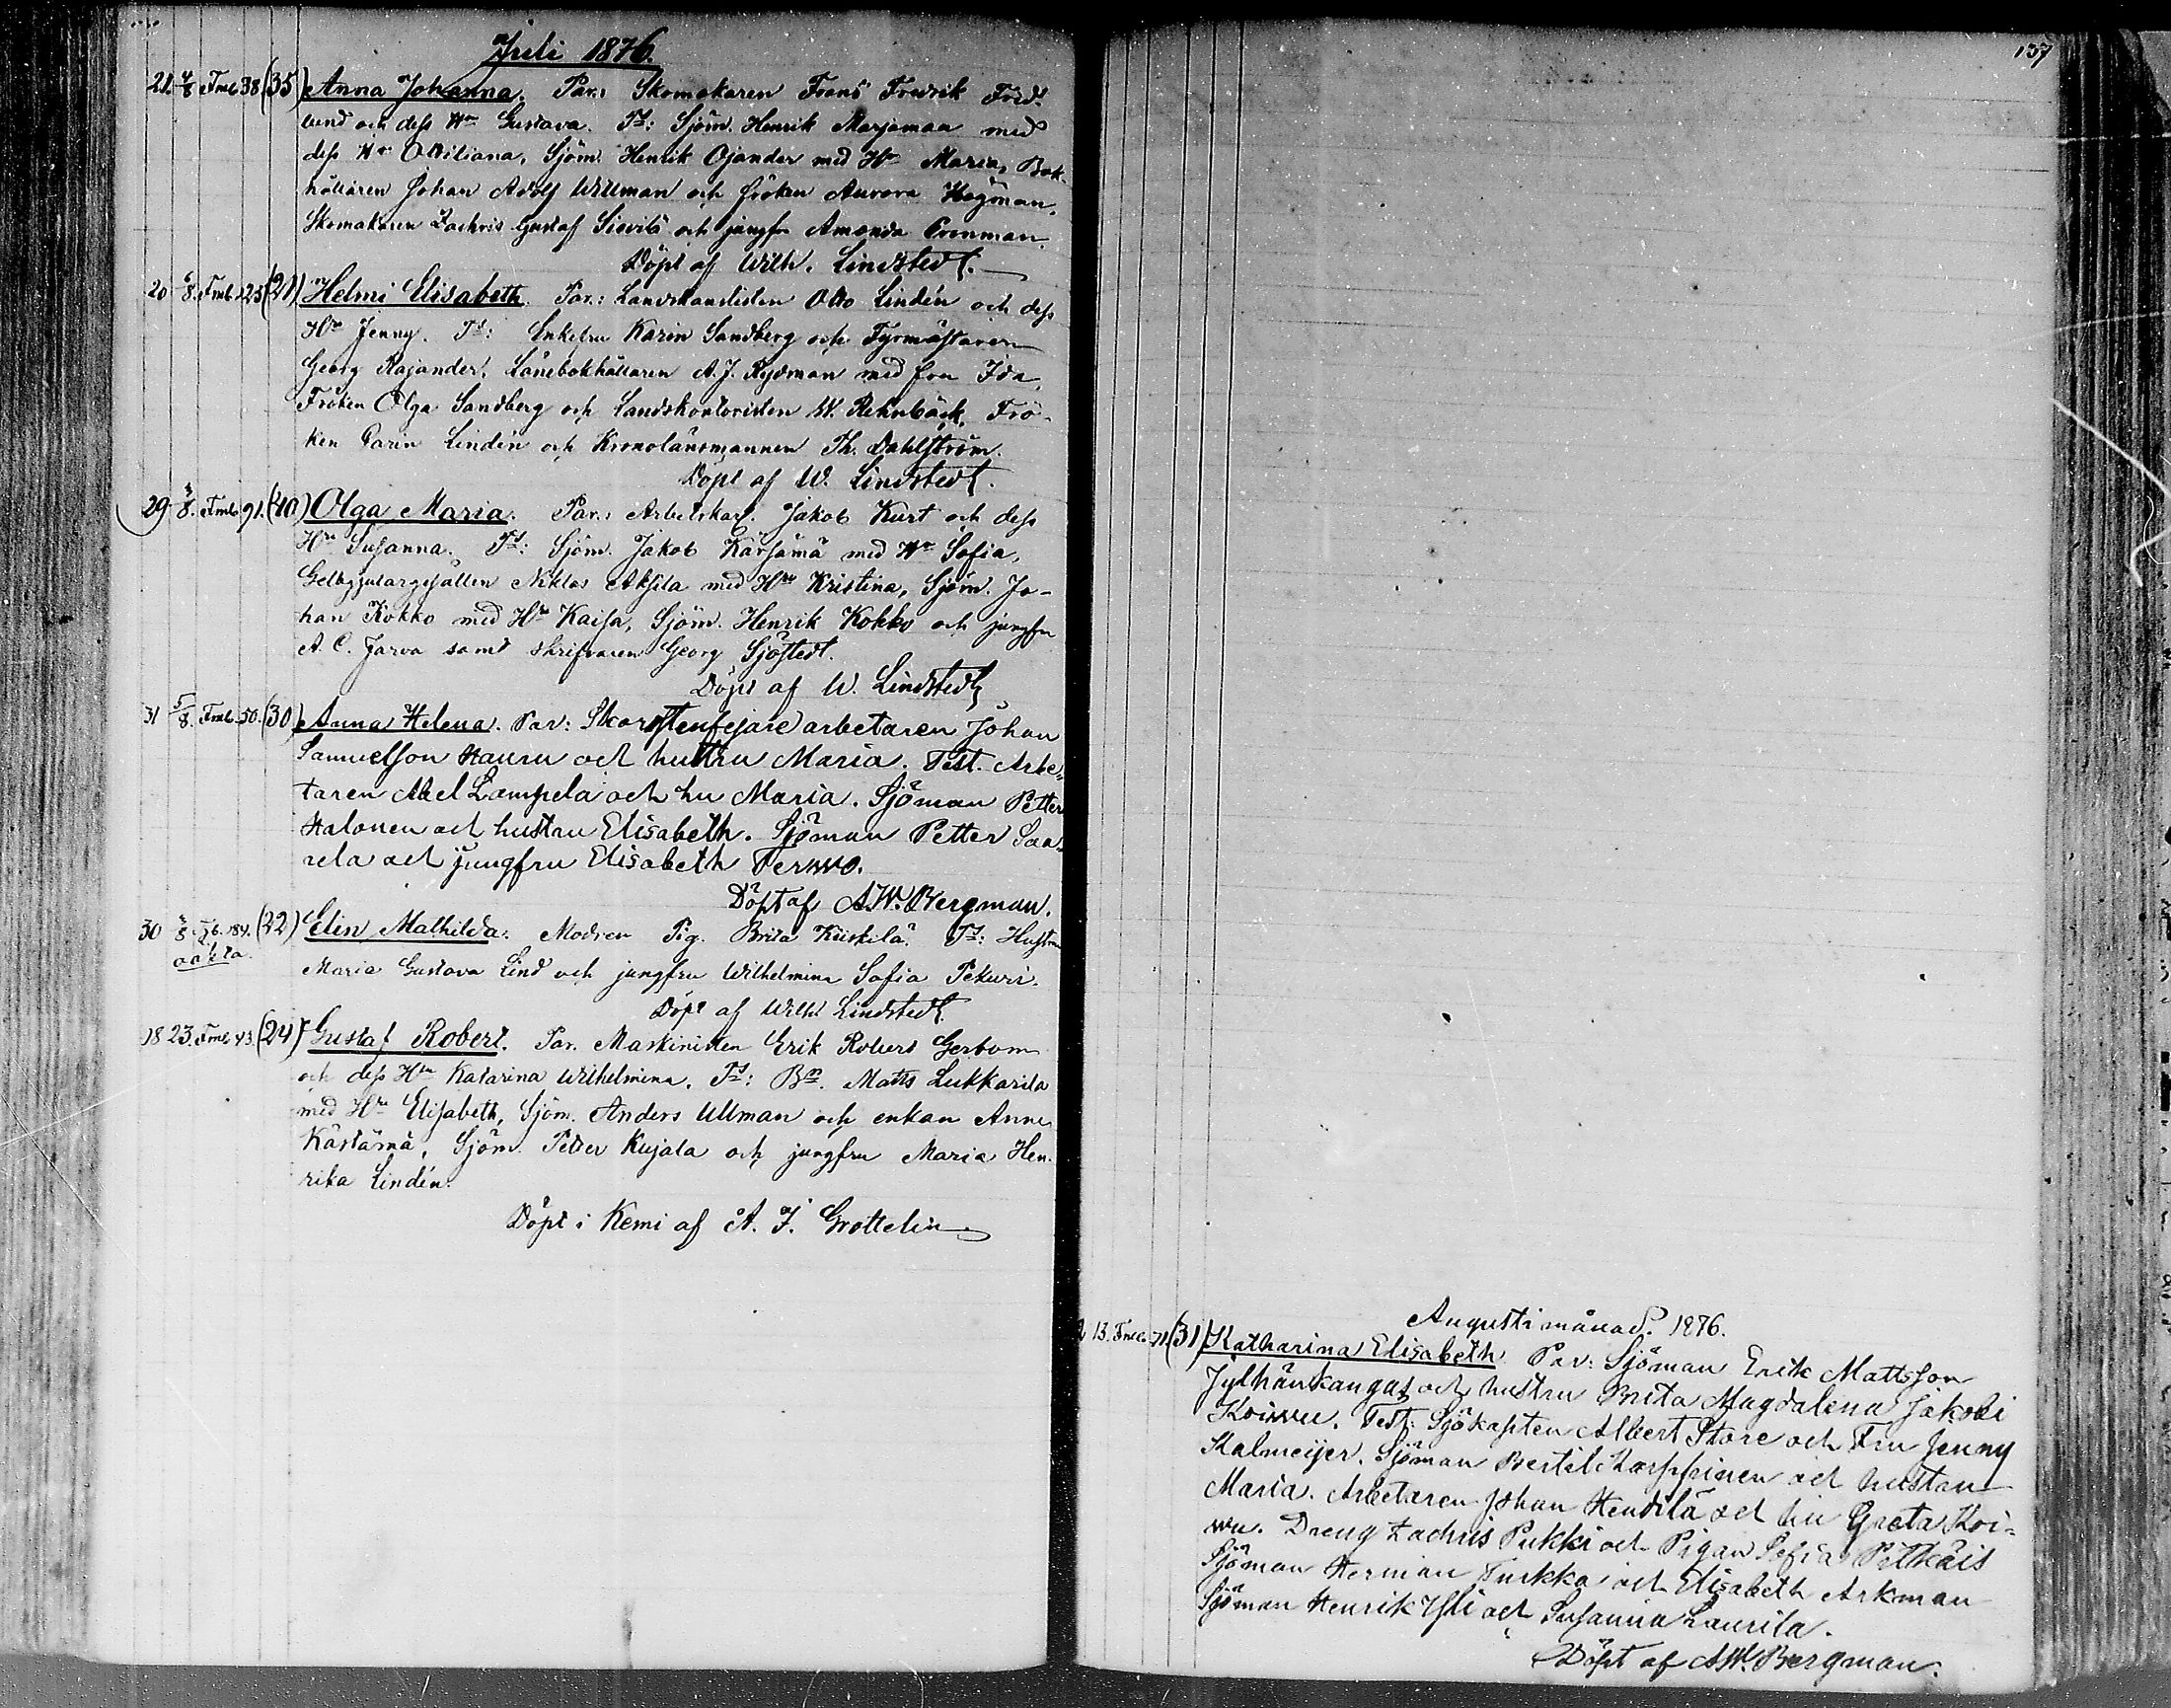 Juli 1876.
21. 4/8 Fmb. 38 (35) Anna Johanna. Par: Skomakaren Frans Fredrik Fred-
lund och dess Hu Gustava. Tt: Sjöm. Henrik Marjamaa med
dess Hu Ottiliana, Sjöm. Henrik Ojander med Hu Maria, Bok-
hållaren Johan Adolf Willman och fröken Aurora Hägman,
Skomakaren Zachris Gustaf Sieviö och jungfr Amanda
Döpt af Wilh. Lindstedt.
20 6/8. Fmb. 125 (21) Helmi Elisabeth. Par.: Landskanslisten Otto Lindén och dess
Hu Jenny. Tt: Enkefru Karin Sandberg och Fyrmästaren
Georg Rajander. Lånebokhållaren A. J. Rydman med fru Ida,
Fröken Olga Sandberg och Landskontoristen W. Rehnbäck, Frö-
ken Carin Lindén och Kronolänsmannen Th. Dahlström.
Döpt af W. Lindstedt.
29 8. Fmb. 91. (40) Olga Maria. Par.: Arbetskarl. Jakob Kurt och dess
Hu Susanna. Tt: Sjöm. Jakob Kärsämä med Hu Sofia,
Gelbgjutargesällen Niklas Aksila med Hu Kristina, Sjöm. Jo-
han Kokko med Hu Kaisa, Sjöm. Henrik Kokko och jungfru
A. C. Jarva samt skrifvaren Georg Sjöstedt.
Döpt af W. Lindstedt
31 5/8. Fmb. 50. (30) Anna Helena. Par: Skorstensfejare arbetaren Johan
Samuelsson Hauru och hustru Maria. Test. Arbe-
taren Abel Lampela och hu Maria. Sjöman Petter
Halonen och hustru Elisabeth. Sjöman Petter Saa-
rela och jungfru Elisabeth Terwo.
Döpt af A.W. Bergman.
30 8 184. (22) Elin Mathilda. Modren Pig. Brita Kiiskilä. Tt: Hustru
oäkta. Maria Gustava Lind och jungfru Wilhelmina Sofia Pekuri.
Döpt af Wilh. Lindstedt.
18 23. Fmb. 43. (24) Gustaf Robert. Par. Maskinisten Erik Robert Gerbom
och dess Hu Katarina Wilhelmina. Tt: Bn. Matts Lukkarila
med Hu Elisabeth, Sjöm. Anders Ullman och enkan Anna
Kärsämä, Sjöm. Petter Kujala och jungfru Maria Hen-
rika Lindén.
Döpt i Kemi af A. J. Grottelin
137
Augusti månad. 1876.
13. Fmb. 71. (31) Katharina Elisabeth. Par: Sjöman Erik Mattsson
Jylhänkangas och hustru Brita Magdalena Jakobi
Koiwu. Test: Sjökapten Albert Store och Fru Jenny
Malmeijer. Sjöman Bertil Karppinen och hustru
Maria. Arbetaren Johan Hendilä och hu Greta Koi-
wu. Dreng Zachris Pukki och Pigan Sofia Pitkäis
Sjöman Herman Turkka och Elisabeth Arkman
Sjöman Henrik Yli och Susanna Laurila.
Döpt af A.W. Bergman.